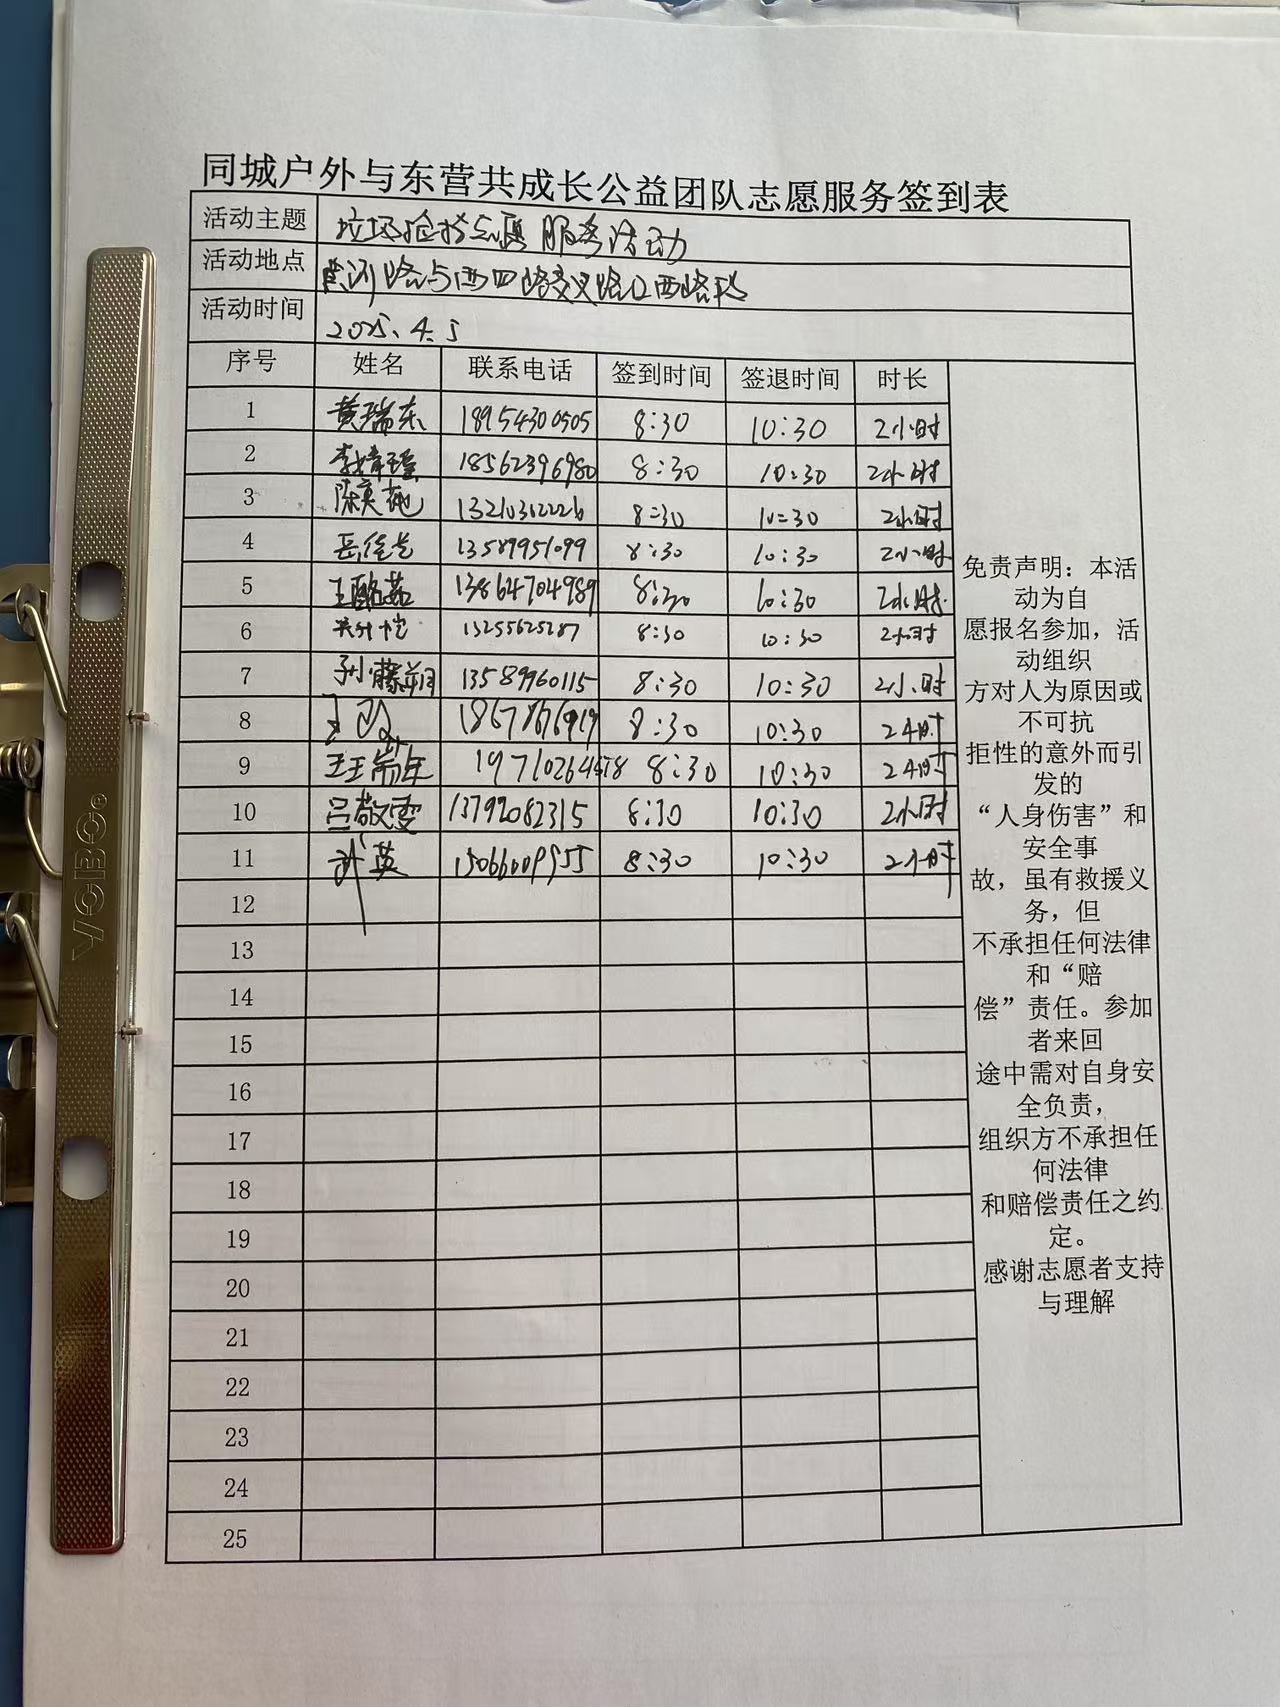 同城户外与东营共成长公益团队志愿服务签到表
活动主题 垃圾捡拾志愿服务活动
活动地点 黄河路与西四路交叉路口西路段
活动时间 2025.4.5
序号 姓名 联系电话 签到时间 签退时间 时长
1 黄瑞东 18954300505 8:30 10:30 2小时
2 李婧瑶 18562396980 8:30 10:30 2小时
3 陈奕 8:30 10:30 2小时
4 岳佳 13589951099 8:30 10:30 2小时
5 王 13864704989 8:30 10:30 2小时
6 13255625287 8:30 10:30 2小时
7 孙藤朔 13589960115 8:30 10:30 2小时
8 8:30 10:30 2小时
9 8:30 10:30 2小时
10 吕敬雯 13792082315 8:30 10:30 2小时
11 武英 15066009955 8:30 10:30 2小时
12
13
14
15
16
17
18
19
20
21
22
23
24
25
免责声明：本活
动为自
愿报名参加，活
动组织
方对人为原因或
不可抗
拒性的意外而引
发的
“人身伤害”和
安全事
故，虽有救援义
务，但
不承担任何法律
和“赔
偿”责任。参加
者来回
途中需对自身安
全负责，
组织方不承担任
何法律
和赔偿责任之约
定。
感谢志愿者支持
与理解
YOBO